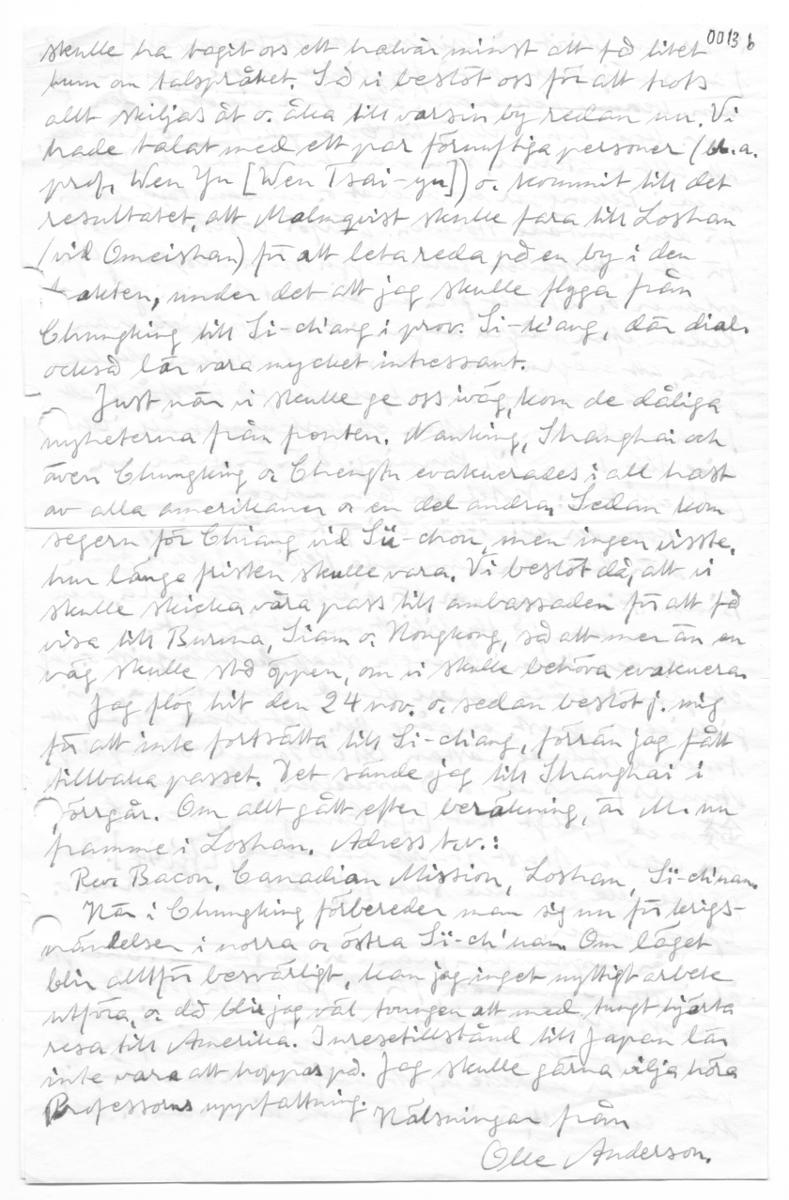 0013 b
skulle ha tagit oss ett halvår minst att få litet
hum om talspråket. Så vi beslöt oss för att trots
allt skiljas åt o. åka till varsin by redan nu. Vi
hade talat med ett par förnuftiga personer (bl.a.
prof. Wen Yu [Wen Tsai-yu]) o. kommit till det
resultatet, att Malmqvist skulle fara till Loshan
(vid Omeishan) för att leta reda på en by i den
trakten, under det att jag skulle flyga från
Chungking till Si-ch'ang i prov. Si-k'ang, där dial.
också lär vara mycket intressant.
Just när vi skulle ge oss iväg, kom de dåliga
nyheterna från fronten. Nanking, Shanghai och
även Chungking o. Chengtu evakuerades i all hast
av alla amerikaner o. en del andra. Sedan kom
segern för Chiang vid Sü-chou, men ingen visste,
hur länge fristen skulle vara. Vi beslöt då, att vi
skulle skicka våra pass till ambassaden för att få
visa till Burma, Siam o. Hongkong, så att mer än en
väg skulle stå öppen, om vi skulle behöva evakuera.
Jag flög hit den 24 nov. o. sedan beslöt j. mig
för att inte fortsätta till Si-ch'ang, förrän jag fått
tillbaka passet. Det sände jag till Shanghai i
förrgår. Om allt gått efter beräkning, är M. nu
framme i Loshan. Adress t.v.:
Rev. Bacon, Canadian Mission, Loshan, Sï-ch'uan.
Här i Chungking förbereder man sig nu för krigs-
händelser i norra o. östra Sï-ch'uan. Om läget
blir alltför besvärligt, kan jag inget nyttigt arbete
utföra, o. då blir jag väl tvungen att med tungt hjärta
resa till Amerika. Inresetillstånd till Japan lär
inte vara att hoppas på. Jag skulle gärna vilja höra
Professorns uppfattning.
Hälsningar från
Olle Anderson.